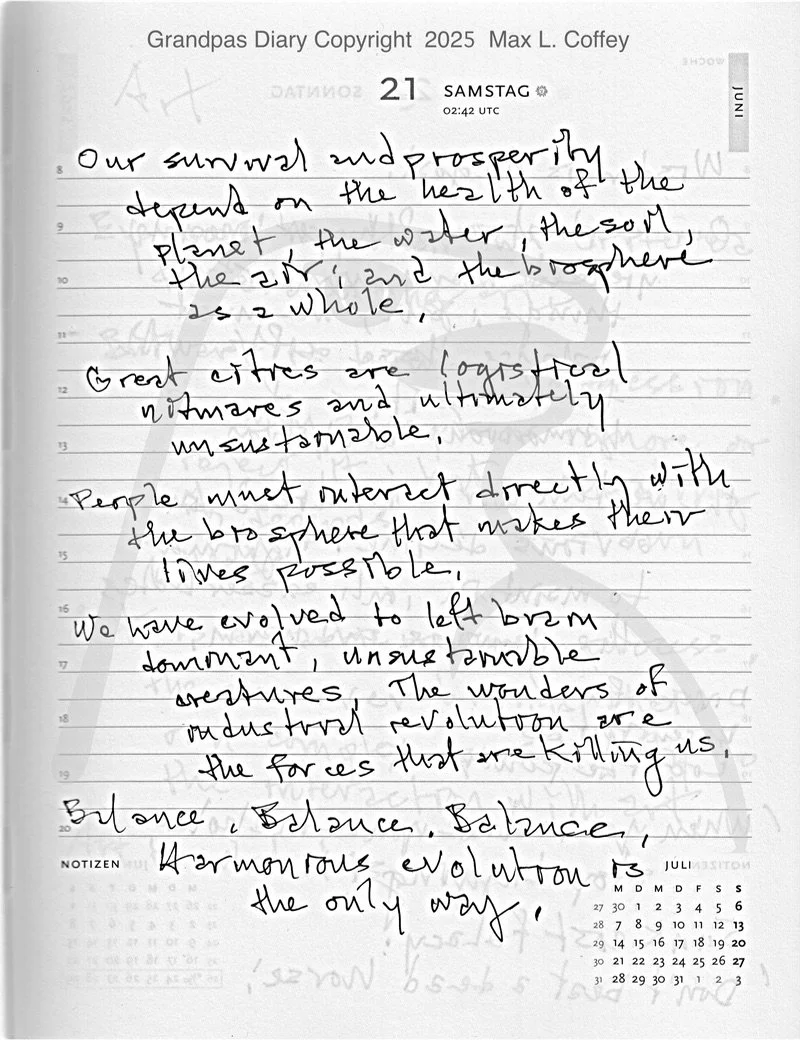 Grandpas Diary Copyright 2025 Max L. Coffey
21 SAMSTAG
02:42 UTC
JUNI
8
9
10
11
12
13
14
15
16
17
18
19
20
Our survival and prosperity
depend on the health of the
planet, the water, the soil,
the air, and the biosphere
as a whole.
Great cities are logistical
nitmares and ultimately
unsustainable.
People must interact directly with
the biosphere that makes their
lives possible.
We have evolved to left brain
dominant, unsustainable
creatures. The wonders of
industrial revolution are
the forces that are killing us.
Balance. Balance. Balance.
Harmonious evolution is
the only way.
NOTIZEN
JULI
M D M D F S S
27 30 1 2 3 4 5 6
28 7 8 9 10 11 12 13
29 14 15 16 17 18 19 20
30 21 22 23 24 25 26 27
31 28 29 30 31 1 2 3